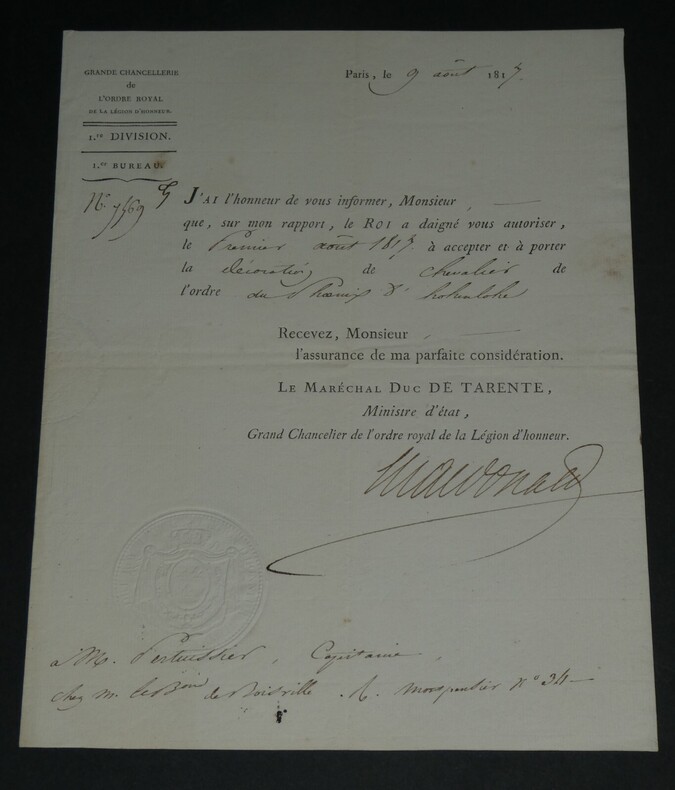 GRANDE CHANCELLERIE
de
L'ORDRE ROYAL
DE LA LÉGION D'HONNEUR.
1.re DIVISION.
1.er BUREAU.
N.
Paris, le 9 août 1817.
J'AI l'honneur de vous informer, Monsieur,
que, sur mon rapport, le ROI a daigné vous autoriser,
le Premier août 1817. à accepter et à porter
la décoration de chevalier de
l'ordre du Phoenix d'hohenlohe
Recevez, Monsieur,
l'assurance de ma parfaite considération.
LE MARÉCHAL DUC DE TARENTE,
Ministre d'état,
Grand Chancelier de l'ordre royal de la Légion d'honneur.
Macdonald
à M. Pertuissier, Capitaine,
chez m. le Bon de Boisville. R. N° 34